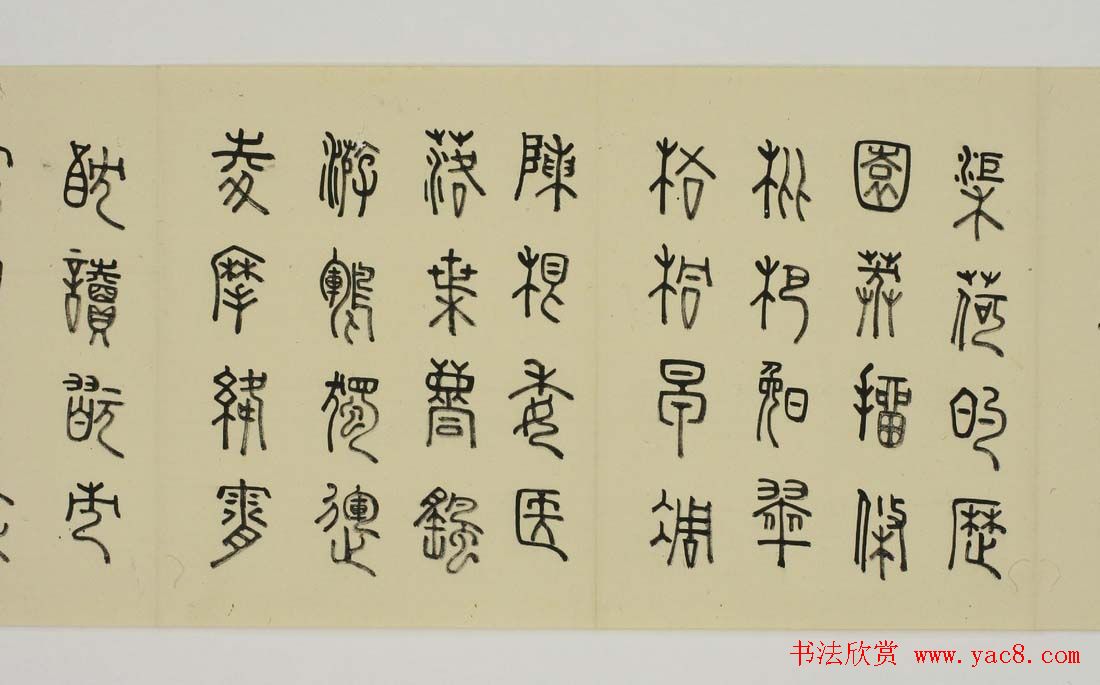 渠荷的歷
園莽抽條
枇杷晚翠
梧桐早凋
陳根委翳
落葉飄颻
游鵾獨運
凌摩絳霄
耽讀翫市
书法欣赏 www.yac8.com